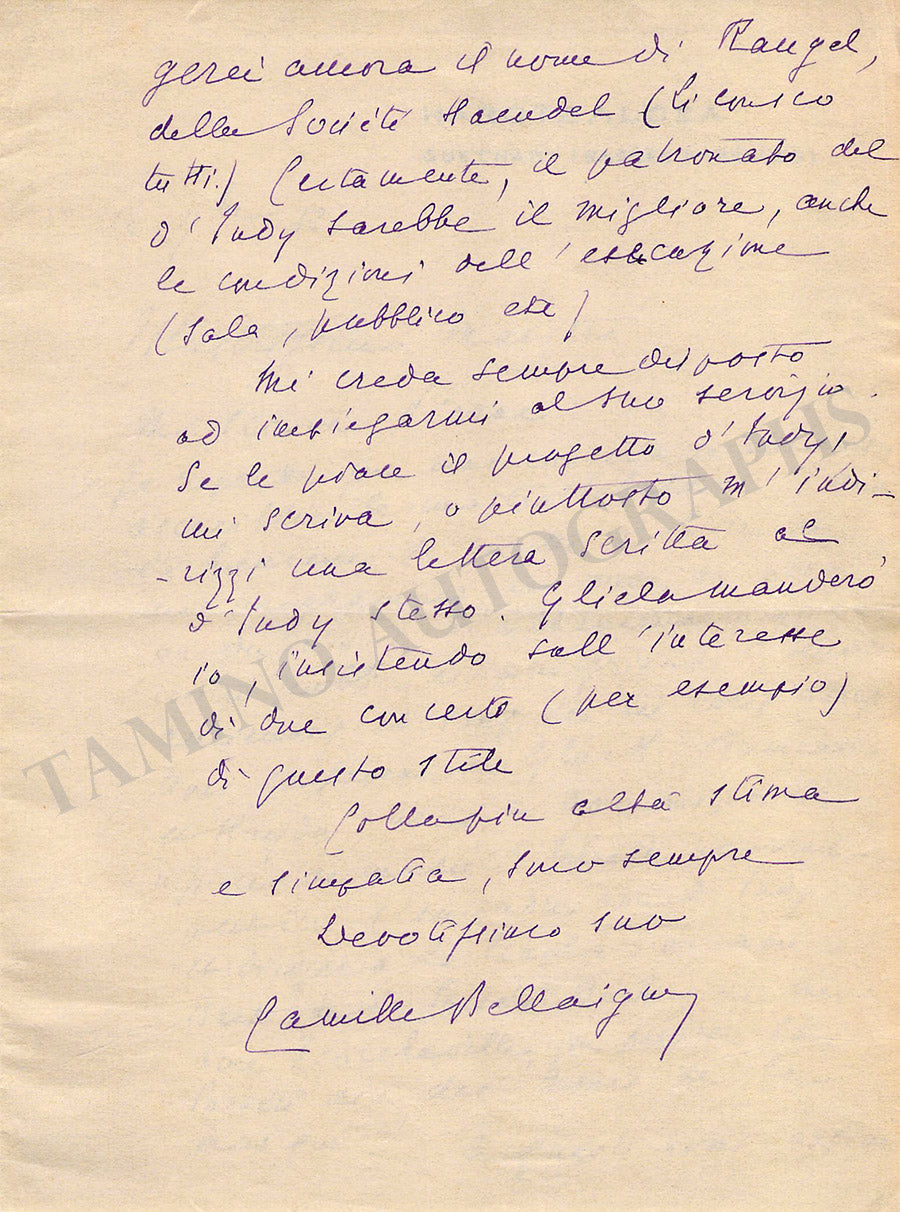 gerei ancora il nome di Raugel,
della Société Haendel (Li conosco
tutti.) Certamente, il patronato del
d'Indy sarebbe il migliore, anche
le condizioni dell'esecuzione
(sala, pubblico etc)
Mi creda sempre disposto
ad impiegarmi al suo servizio.
Se le piace il progetto d'Indy,
mi scriva, o piuttosto m'indi-
-rizzi una lettera scritta al
d'Indy stesso. Gliela manderó
io, insistendo sull'interesse
di due concerti (per esempio)
di questo stile
Colla più alta stima
e simpatia, sono sempre
Devotissimo suo
Camille Bellaigue
TAMINO AUTOGRAPHS